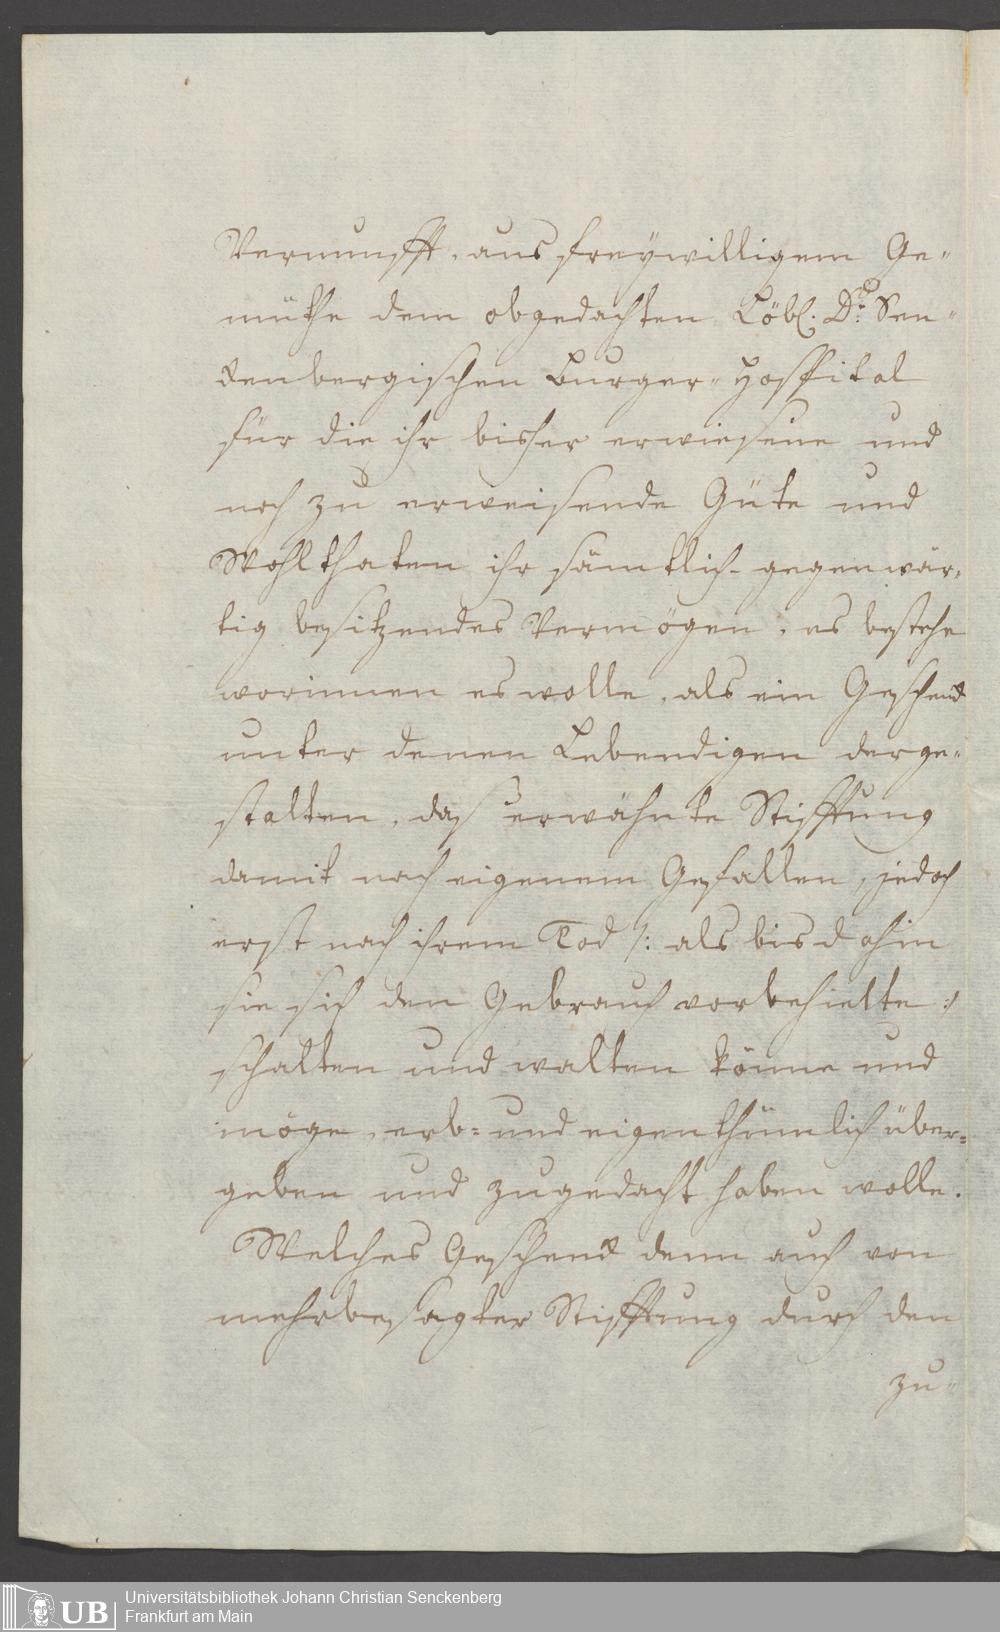 Vernunfft, aus freywilligem Ge-
müthe dem obgedachten Löbl. Dr. Sen-
ckenbergischen Burger-Hospital
für die ihr bisher erwiesene und
noch zu erweisende Güte und
Wohlthaten ihr sämtlich-gegenwär-
tig besitzendes Vermögen, es bestehe
worinnen es wolle, als ein Geschenck
unter denen Lebendigen derge-
stalten, daß erwähnte Stifftung
damit nach eigenem Gefallen, jedoch
erst nach ihrem Tod /: als bis dahin
sie sich den Gebrauch vorbehielte :/
schalten und walten könne und
möge, erb- und eigenthümlich über-
geben und zugedacht haben wolle.
Welches Geschenck denn auch von
mehrbesagter Stifftung durch den
zu-
UB
Universitätsbibliothek Johann Christian Senckenberg
Frankfurt am Main